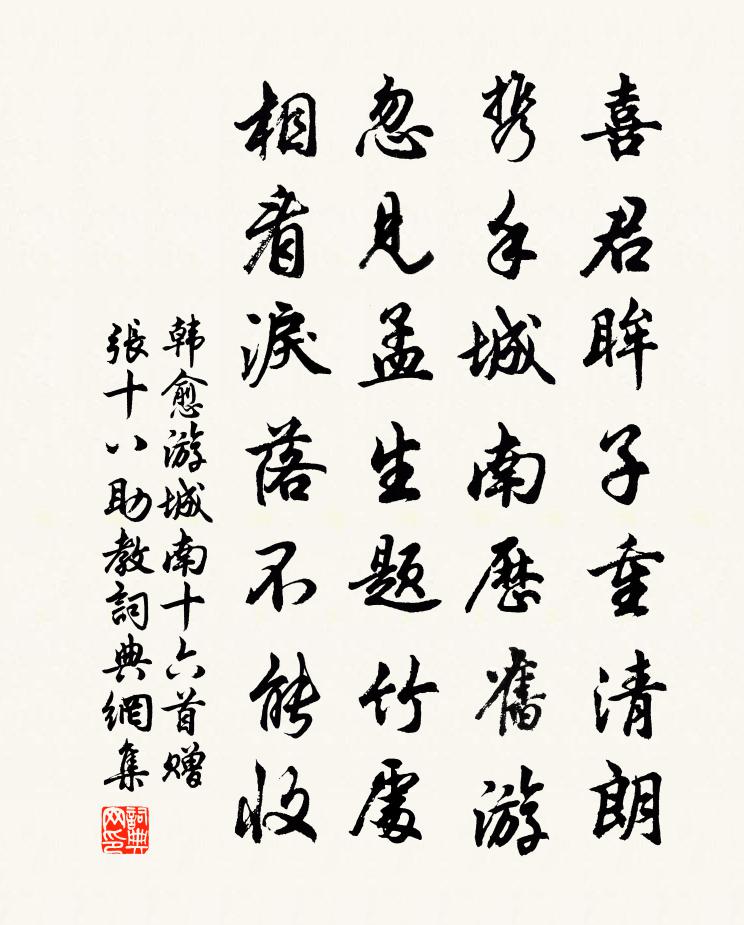 喜君眸子重清朗
携手城南歷舊游
忽見孟生題竹處
相看淚落不能收
韩愈游城南十六首赠
張十八助教詞典網集
詞典網印